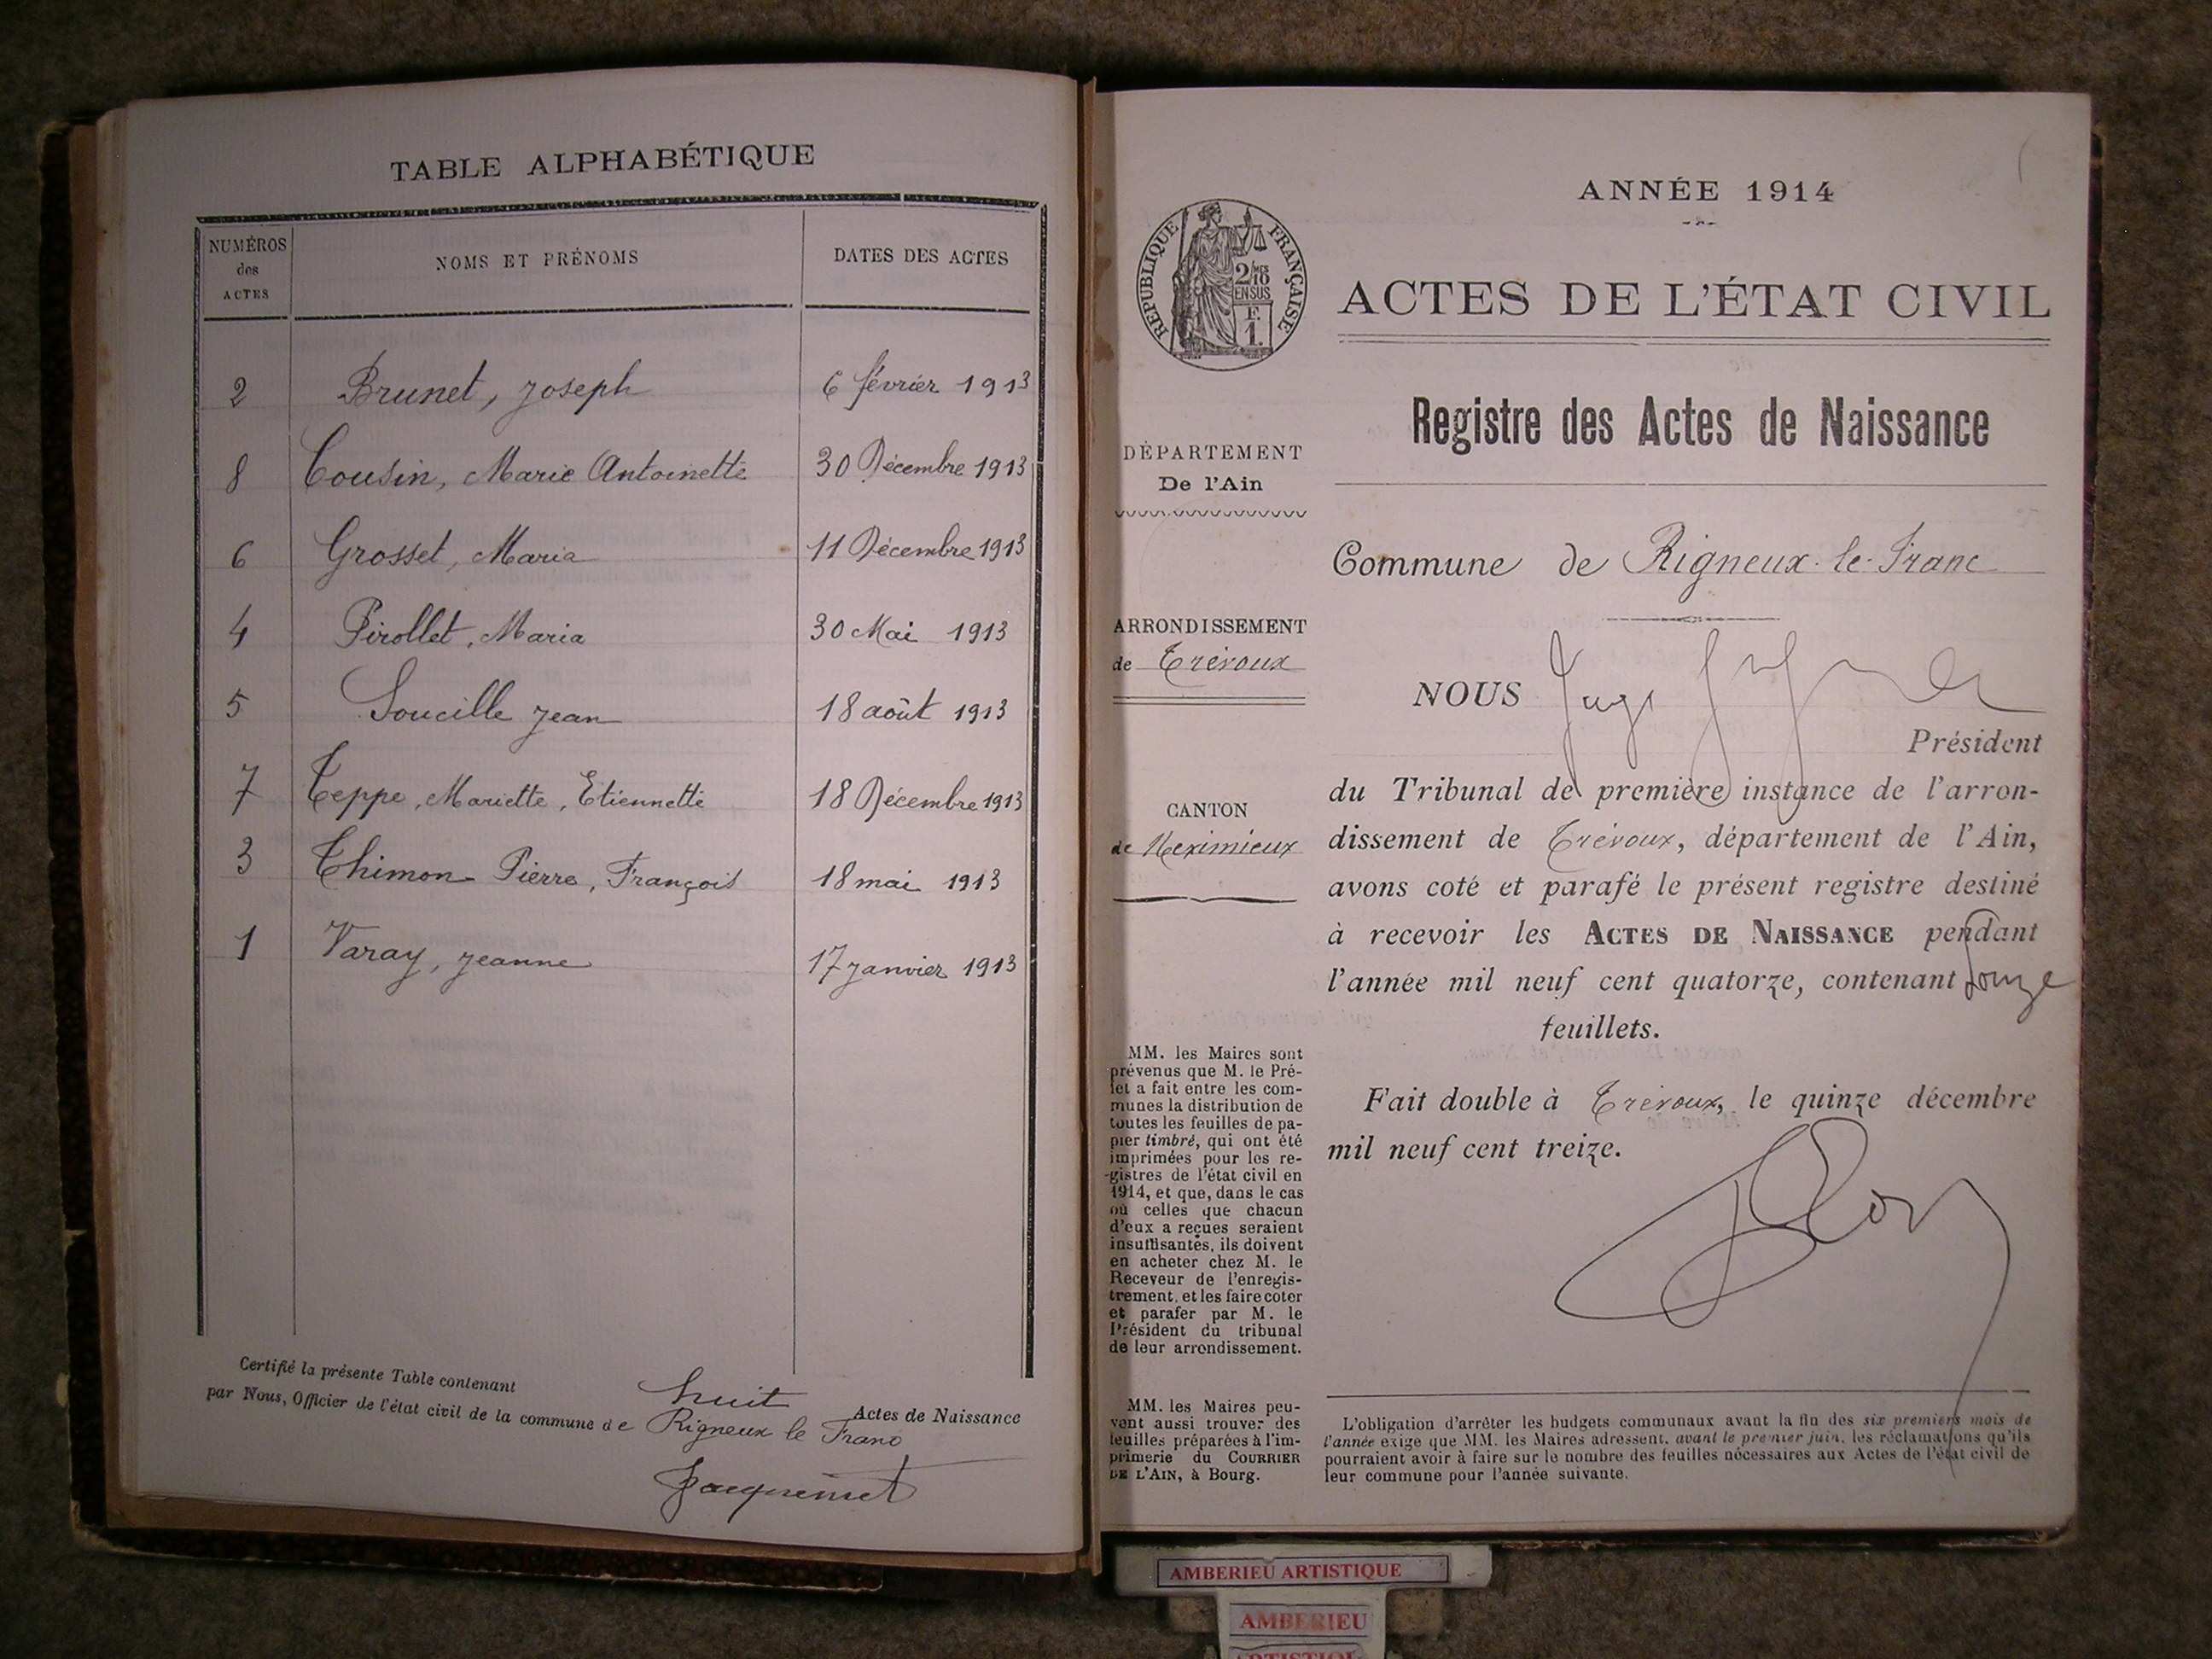 TABLE ALPHABÉTIQUE
NUMÉROS
des
ACTES
NOMS ET PRÉNOMS
DATES DES ACTES
2 Brunet, Joseph 6 février 1913
8 Cousin, Marie Antoinette 30 Décembre 1913
6 Grosset, Maria 11 Décembre 1913
4 Pirollet, Maria 30 Mai 1913
5 Soucille Jean 18 août 1913
7 Teppe, Mariette, Etiennette 18 Décembre 1913
3 Thimon Pierre, François 18 mai 1913
1 Varay, Jeanne 17 Janvier 1913
Certifié la présente Table contenant huit Actes de Naissance
par Nous, Officier de l'état civil de la commune de Rigneux le Franc
Jacquemet
ANNÉE 1914
RÉPUBLIQUE FRANÇAISE
2/10 MES
EN SUS
F.
1.
ACTES DE L'ÉTAT CIVIL
Registre des Actes de Naissance
DÉPARTEMENT
De l'Ain
Commune de Rigneux-le-Franc
ARRONDISSEMENT
de Trévoux
CANTON
de Meximieux
NOUS Juge
Président
du Tribunal de première instance de l'arron-
dissement de Trévoux, département de l'Ain,
avons coté et parafé le présent registre destiné
à recevoir les ACTES DE NAISSANCE pendant
l'année mil neuf cent quatorze, contenant douze
feuillets.
Fait double à Trévoux, le quinze décembre
mil neuf cent treize.
MM. les Maires sont
prévenus que M. le Pré-
fet a fait entre les com-
munes la distribution de
toutes les feuilles de pa-
pier timbré, qui ont été
imprimées pour les re-
gistres de l'état civil en
1914, et que, dans le cas
où celles que chacun
d'eux a reçues seraient
insuffisantes, ils doivent
en acheter chez M. le
Receveur de l'enregis-
trement, et les faire coter
et parafer par M. le
Président du tribunal
de leur arrondissement.
MM. les Maires peu-
vent aussi trouver des
feuilles préparées à l'im-
primerie du COURRIER
DE L'AIN, à Bourg.
L'obligation d'arrêter les budgets communaux avant la fin des six premiers mois de
l'année exige que MM. les Maires adressent, avant le premier juin, les réclamations qu'ils
pourraient avoir à faire sur le nombre des feuilles nécessaires aux Actes de l'état civil de
leur commune pour l'année suivante.
AMBERIEU ARTISTIQUE
AMBERIEU
ARTISTIQUE